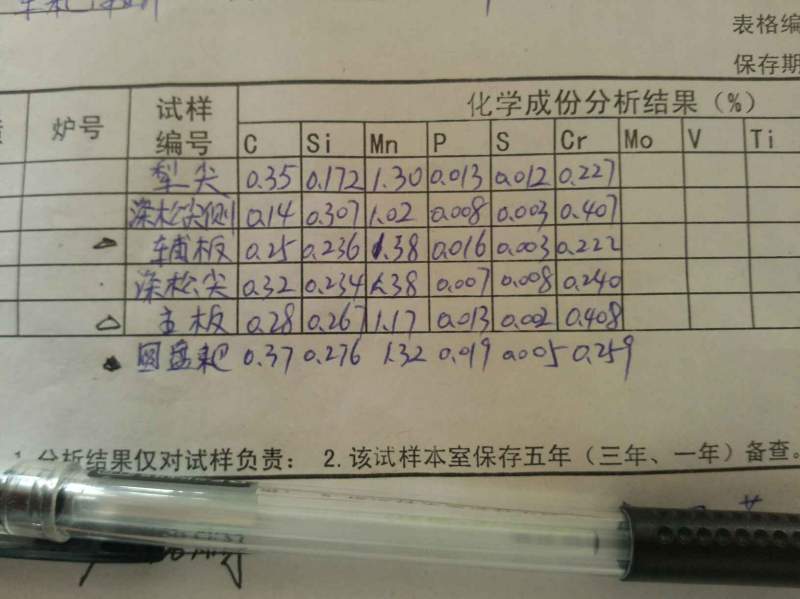 表格编
保存期
炉号 试样编号 化学成份分析结果（%）
C Si Mn P S Cr Mo V Ti
犁尖 0.35 0.172 1.30 0.013 0.012 0.227
深松尖侧 0.14 0.307 1.02 0.008 0.003 0.407
辅板 0.25 0.236 1.38 0.016 0.003 0.222
深松尖 0.32 0.234 1.38 0.007 0.008 0.240
主板 0.28 0.267 1.17 0.013 0.002 0.408
圆盘耙 0.37 0.276 1.32 0.019 0.005 0.259
1.分析结果仅对试样负责： 2.该试样本室保存五年（三年、一年）备查。